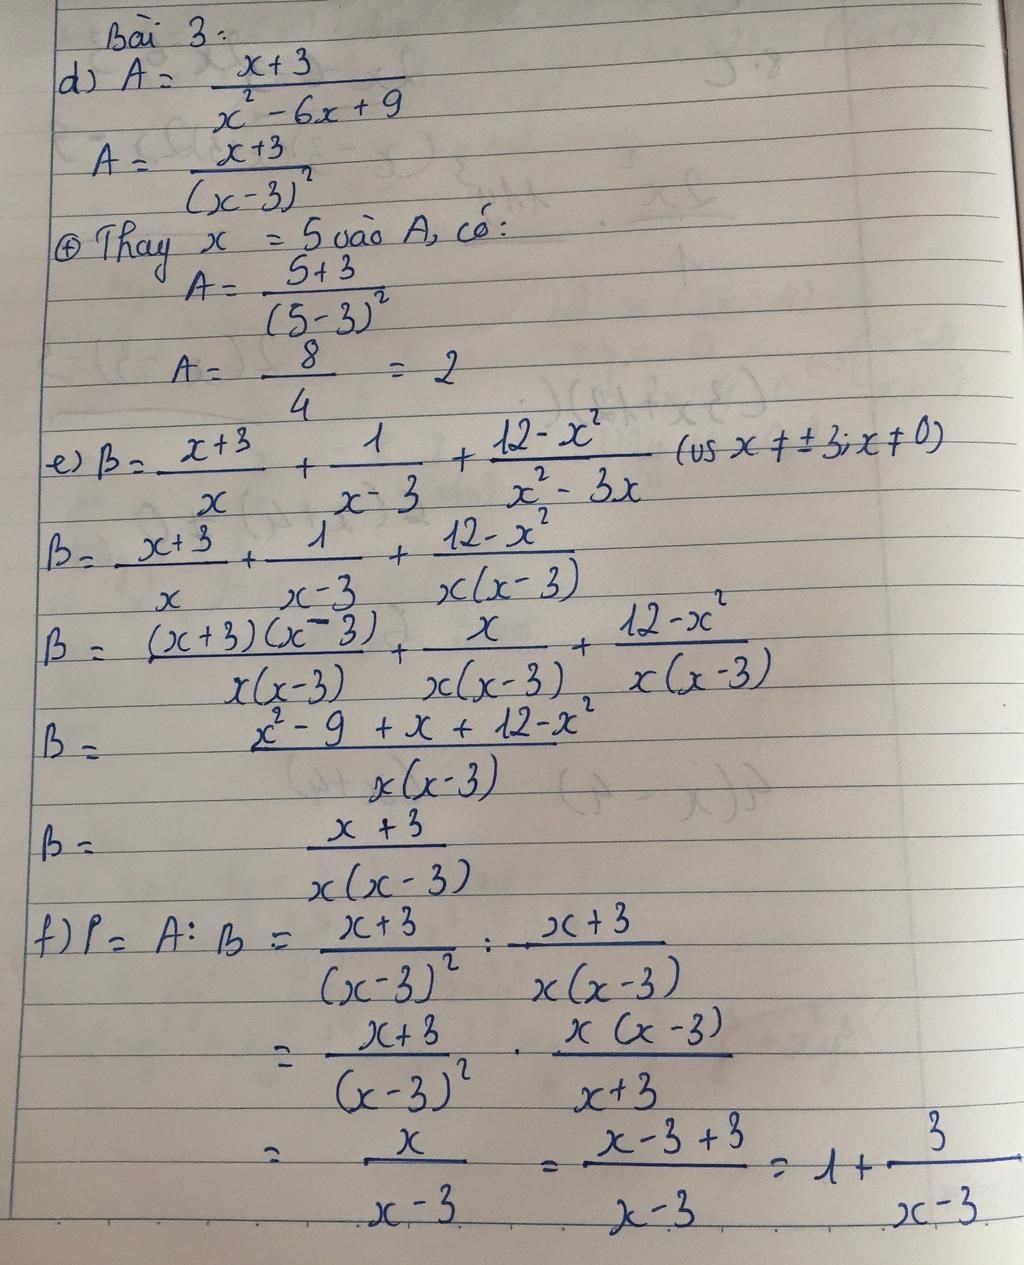 Bài 3:
d) A = \frac{x+3}{x^2 - 6x + 9}
A = \frac{x+3}{(x-3)^2}
⊕ Thay x = 5 vào A, có:
A = \frac{5+3}{(5-3)^2}
A = \frac{8}{4} = 2
e) B = \frac{x+3}{x} + \frac{1}{x-3} + \frac{12-x^2}{x^2-3x} (vs x ≠ ±3; x ≠ 0)
B = \frac{x+3}{x} + \frac{1}{x-3} + \frac{12-x^2}{x(x-3)}
B = \frac{(x+3)(x-3)}{x(x-3)} + \frac{x}{x(x-3)} + \frac{12-x^2}{x(x-3)}
B = \frac{x^2-9+x+12-x^2}{x(x-3)}
B = \frac{x+3}{x(x-3)}
f) P = A : B = \frac{x+3}{(x-3)^2} : \frac{x+3}{x(x-3)}
= \frac{x+3}{(x-3)^2} . \frac{x(x-3)}{x+3}
= \frac{x}{x-3} = \frac{x-3+3}{x-3} = 1 + \frac{3}{x-3}